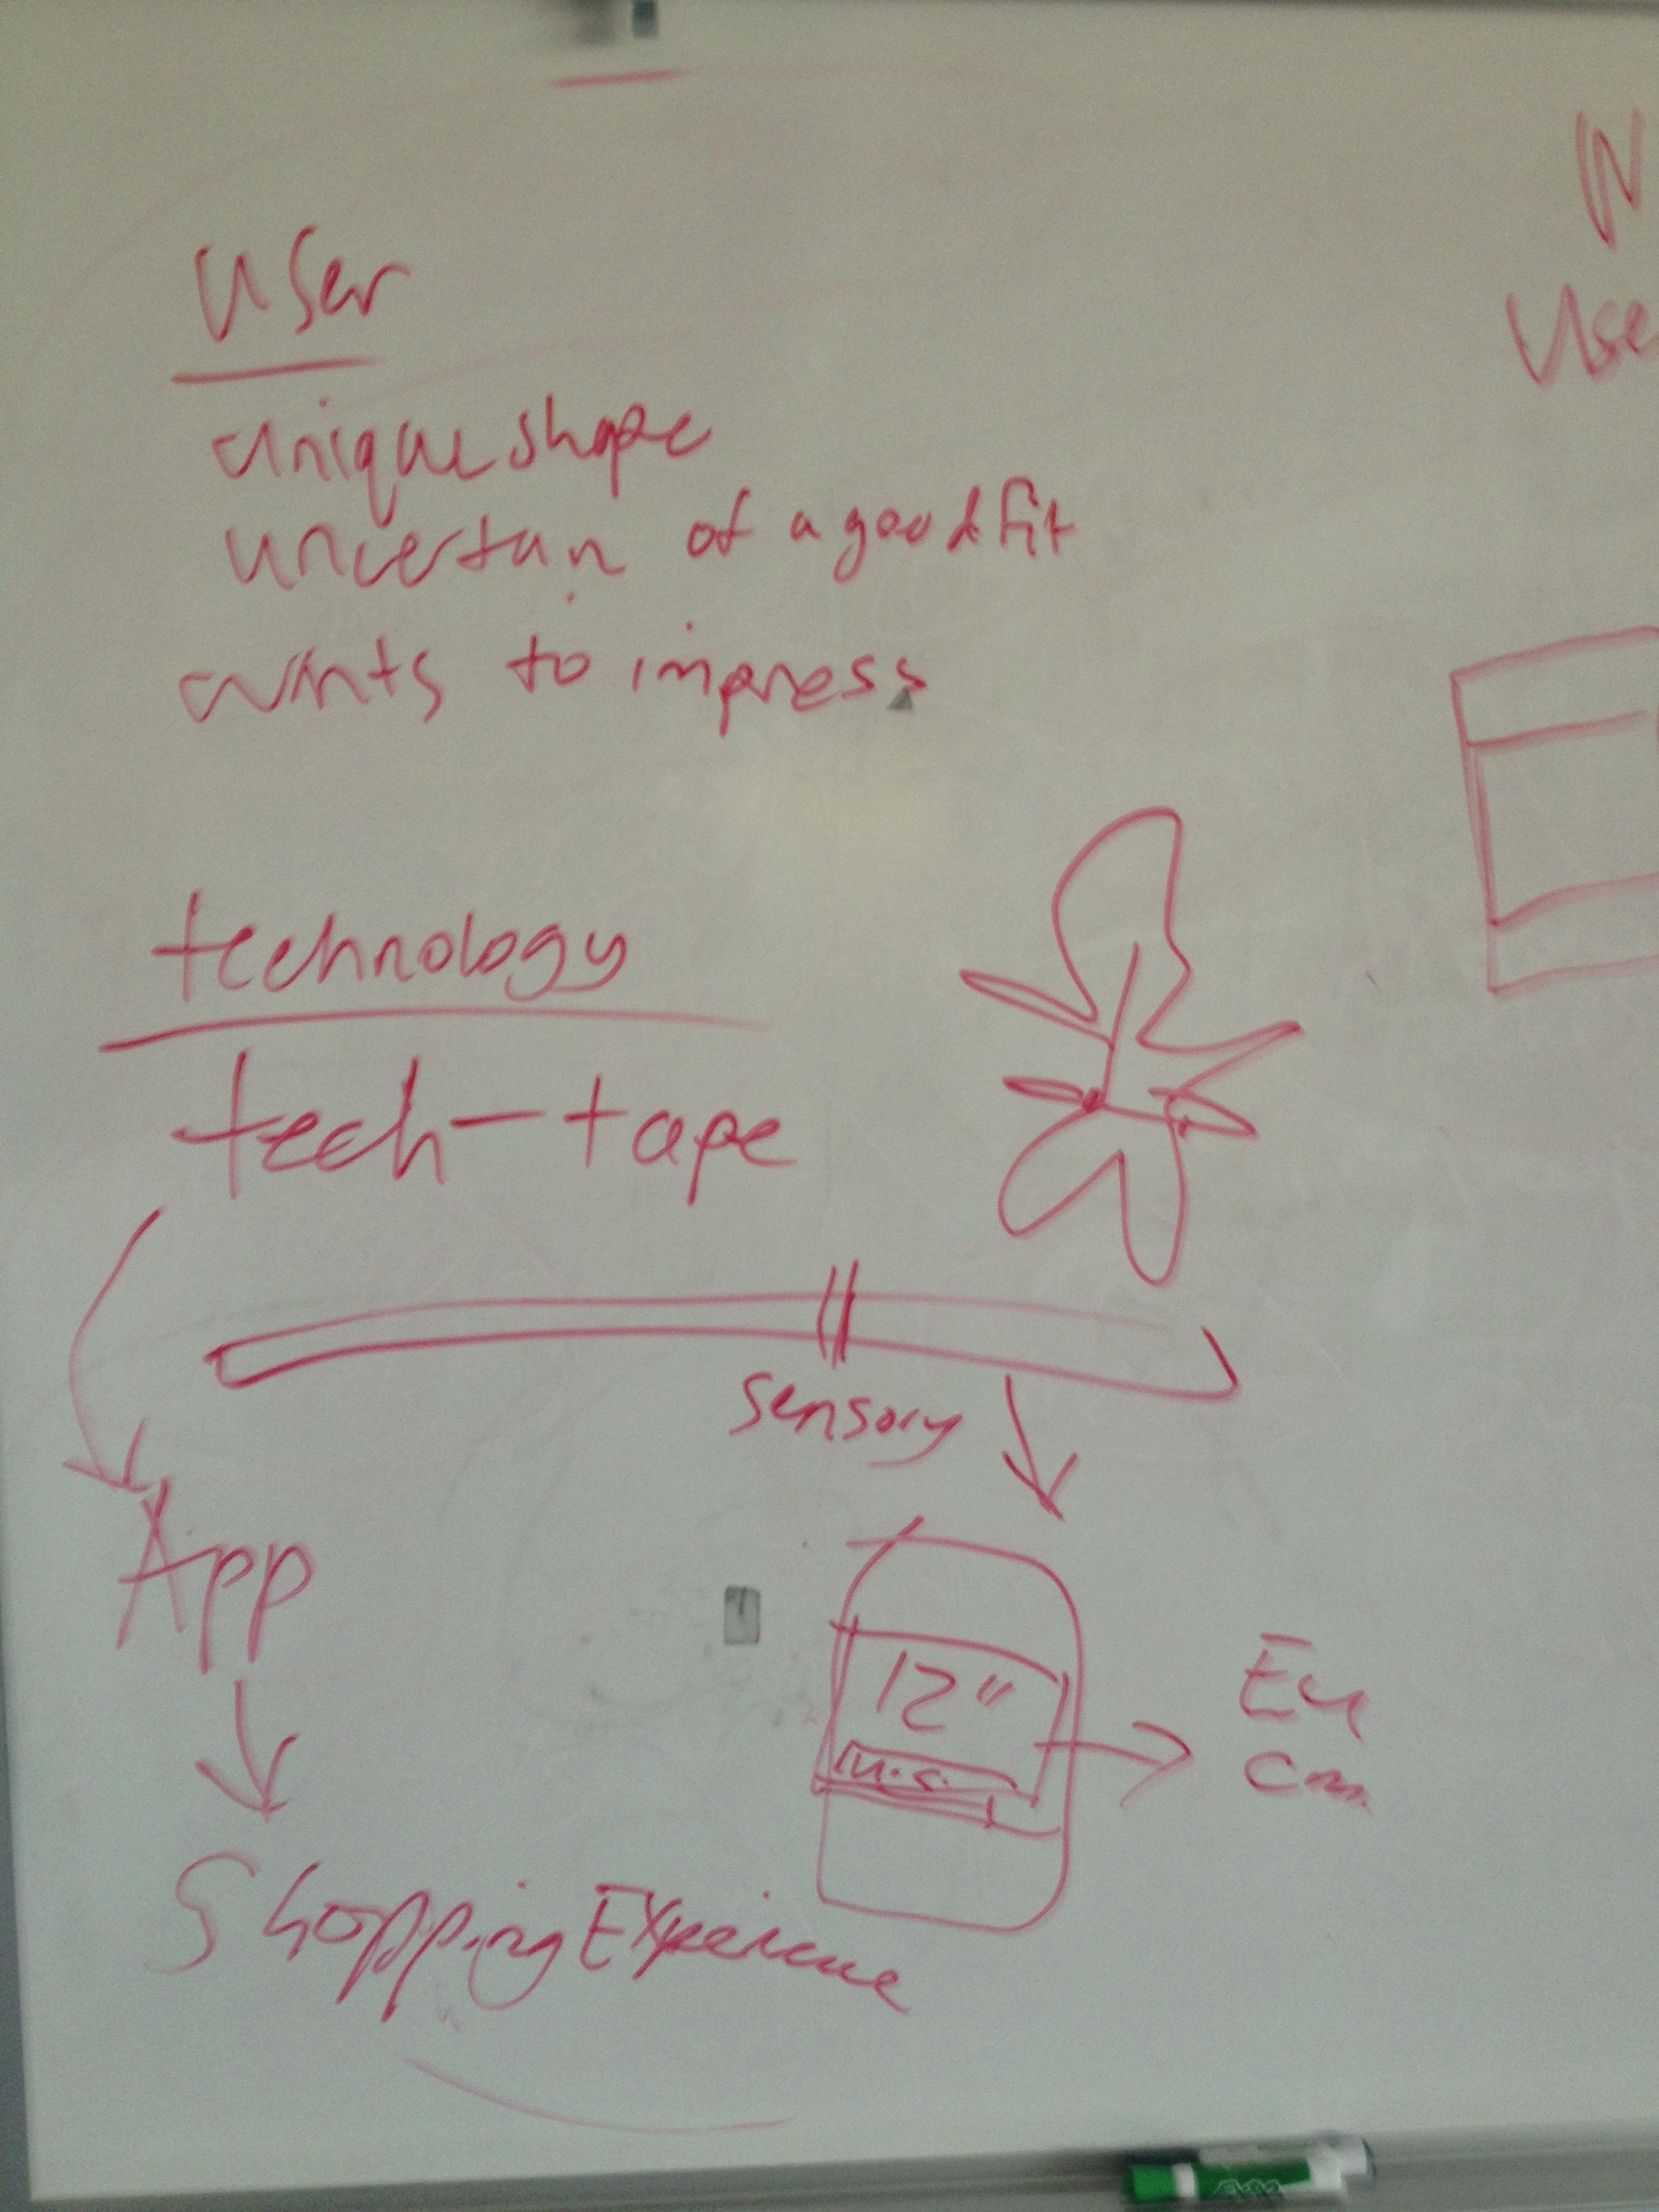 User
unique shape
uncertain of a good fit
wants to impress
technology
tech-tape
sensory
App
12"
u.s.
Eu
cm
Shopping Experience
N
Use